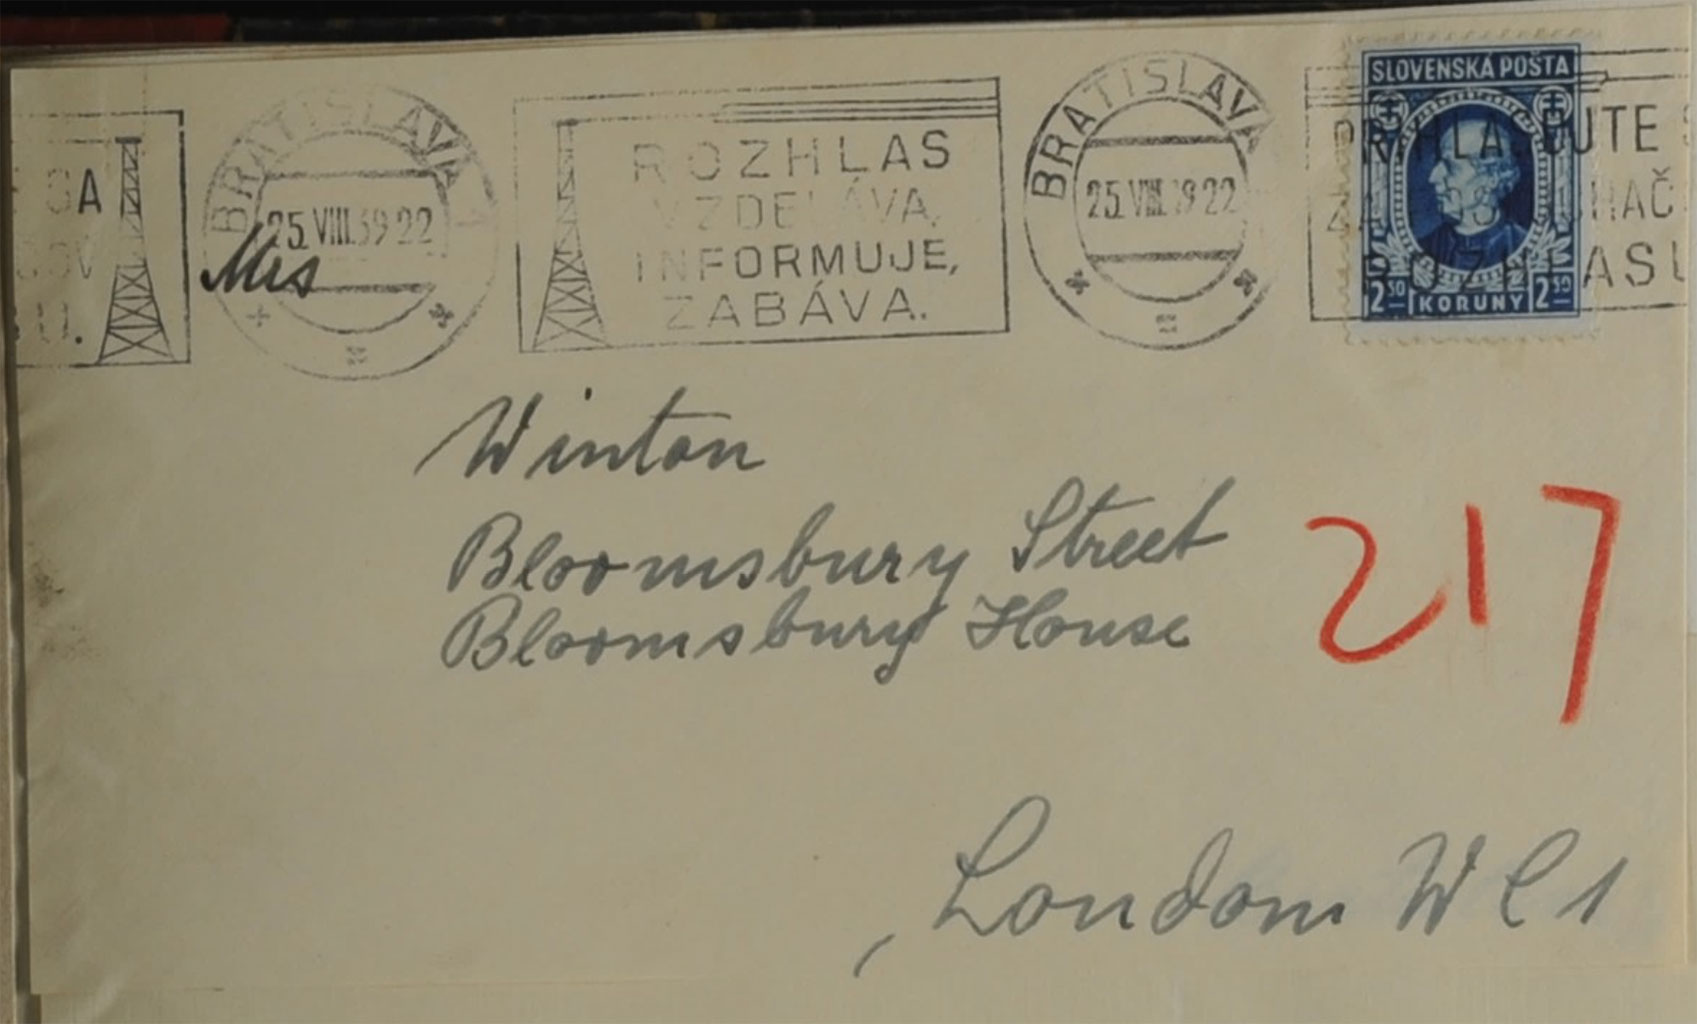 BRATISLAVA
25.VIII.39 22
ROZHLAS
VZDELÁVA,
INFORMUJE,
ZABÁVA.
BRATISLAVA
25.VIII.39 22
SLOVENSKÁ POŠTA
2 50 KORUNY 2 50
Mrs
Winton
Bloomsbury Street
Bloomsbury House
217
London W C 1